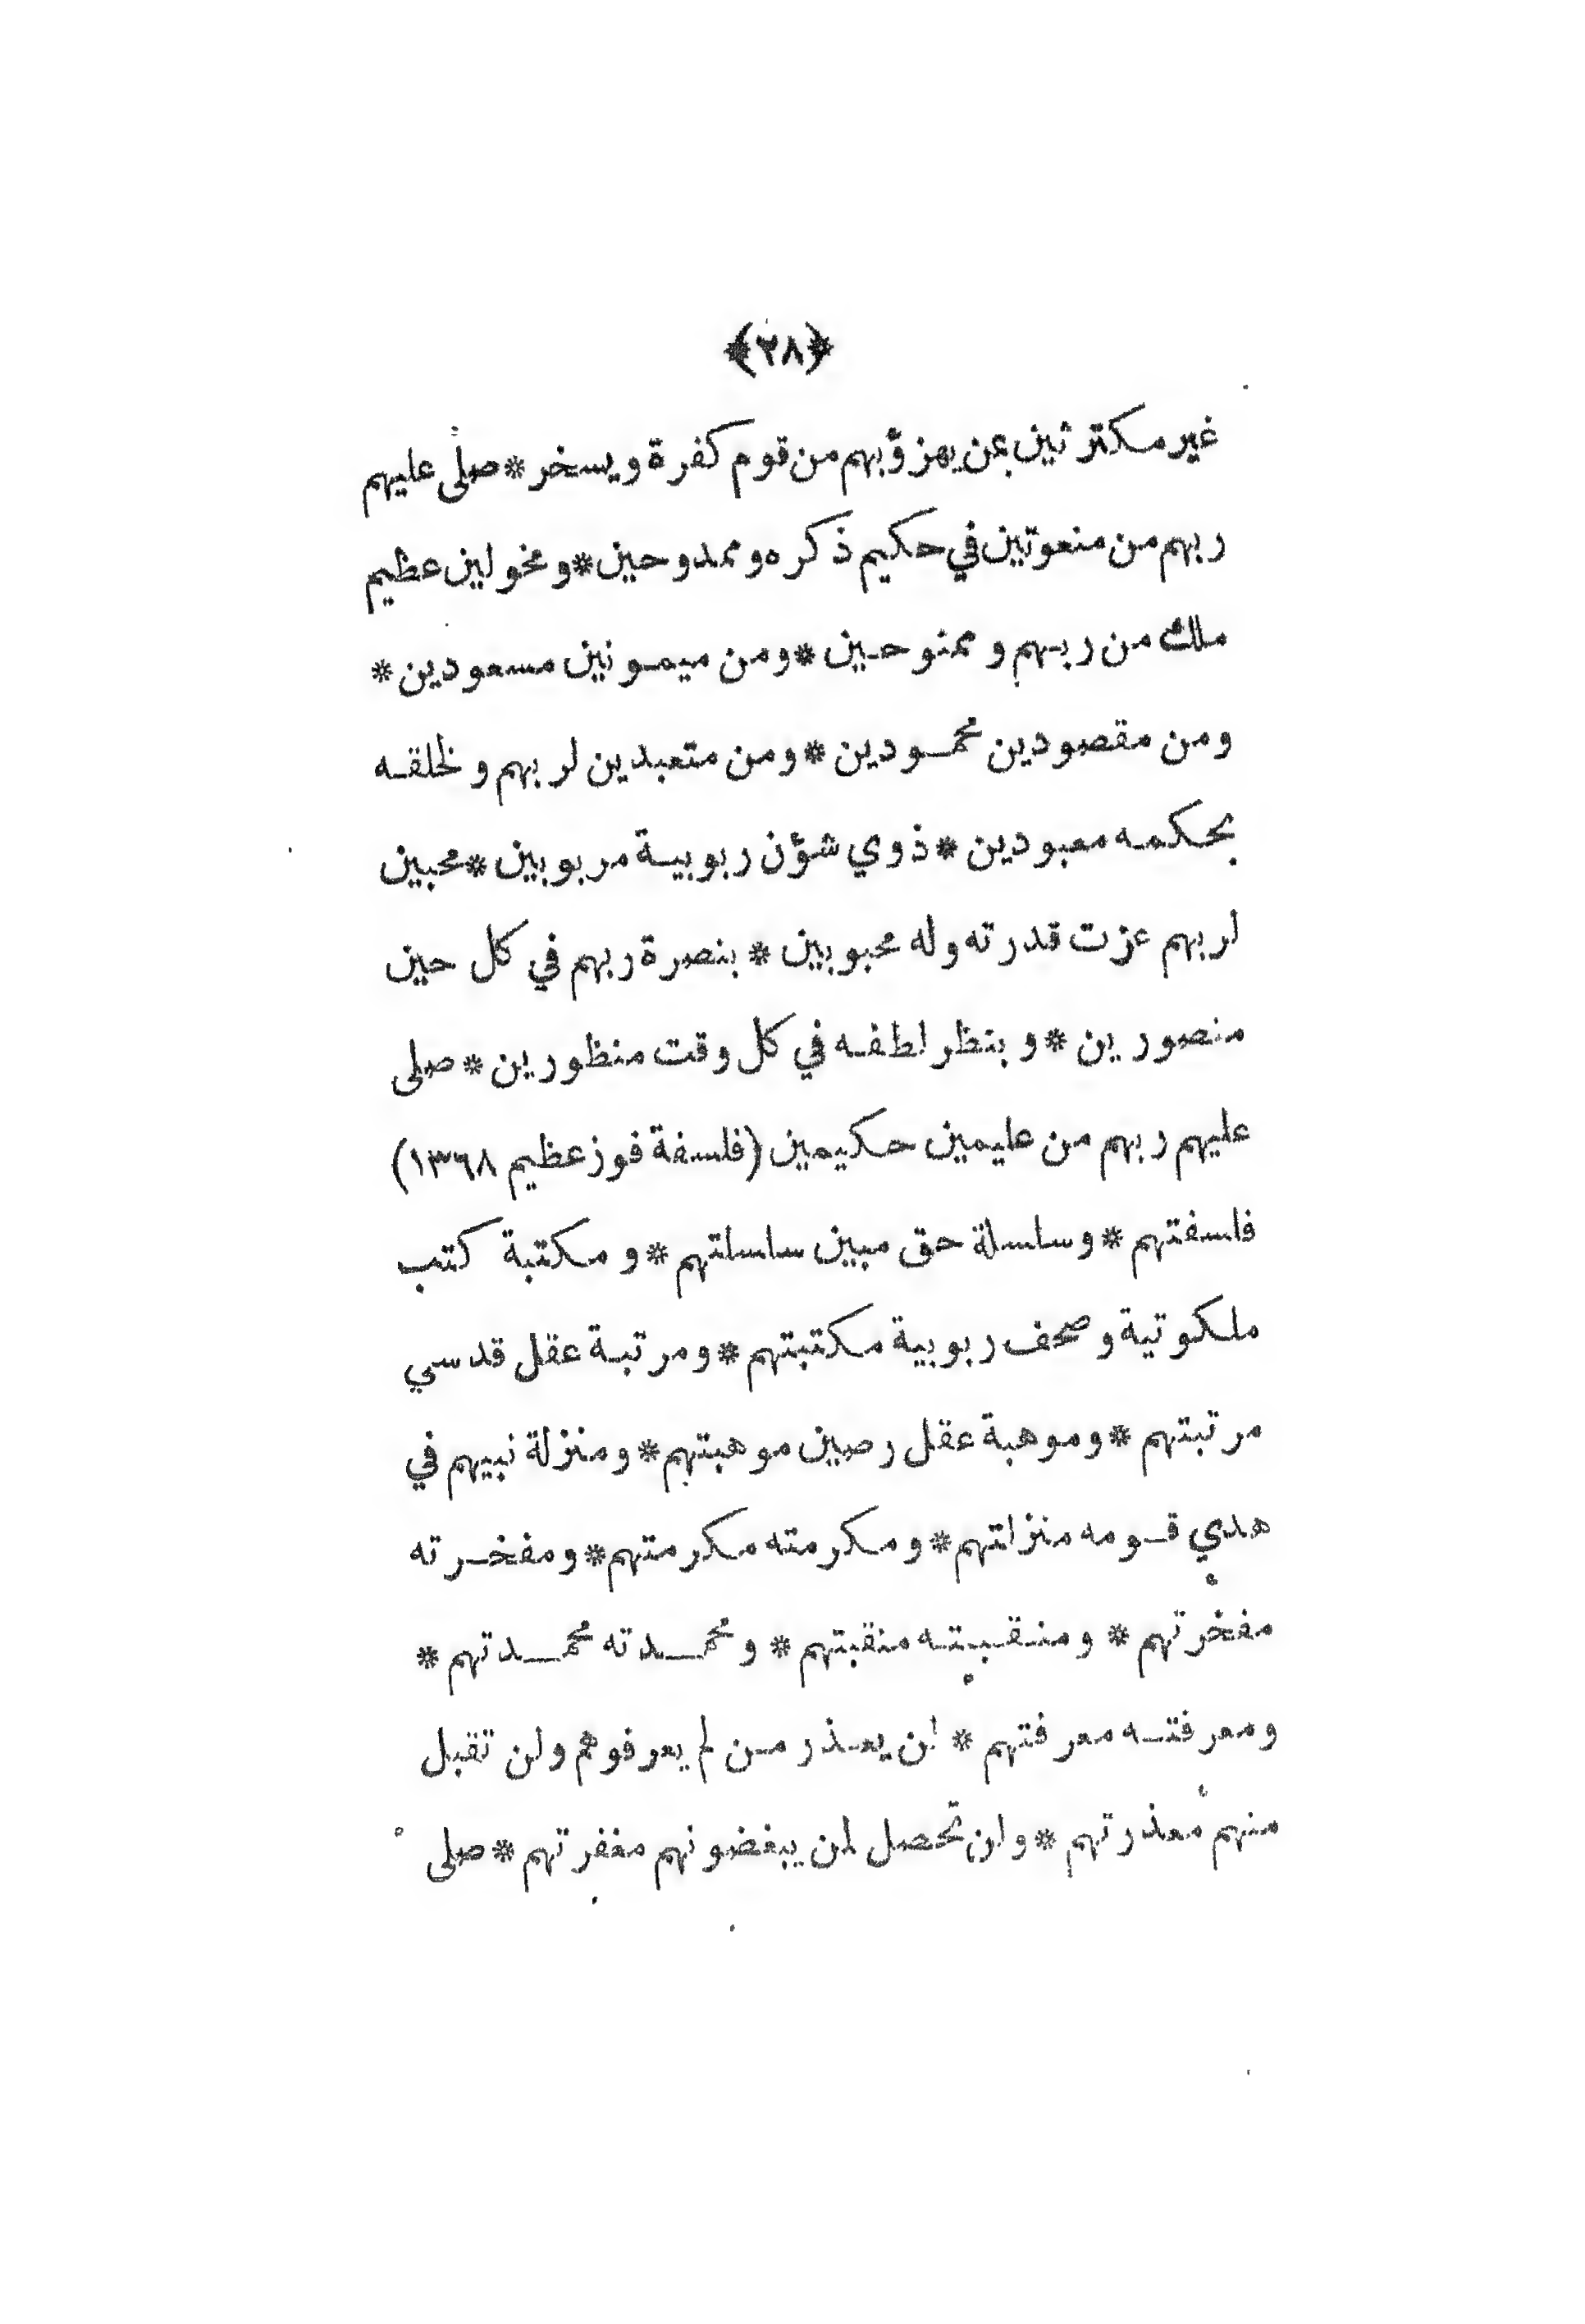 ﴿٢٨﴾
غير مكترثين بمن يهزؤ بهم من قوم كفرة ويسخر * صلى عليهم
ربهم من منعوتين في حكيم ذكره وممدوحين * ومخولين عظيم
ملك من ربهم وممنوحين * ومن ميمونين مسعودين *
ومن مقصودين محمودين * ومن متعبدين لربهم ولخلقه
بحكمه معبودين * ذوي شؤن ربوبية مربوبين * محبين
لربهم عزت قدرته وله محبوبين * بنصرة ربهم في كل حين
منصورين * وبنظر لطفه في كل وقت منظورين * صلى
عليهم ربهم من عليمين حكيمين (فلسفة فوز عظيم ١٣٦٨)
فلسفتهم * وسلسلة حق مبين سلسلتهم * ومكتبة كتب
ملكوتية وصحف ربوبية مكتبتهم * ومرتبة عقل قدسي
مرتبتهم * وموهبة عقل رصين موهبتهم * ومنزلة نبيهم في
هدي قومه منزلتهم * ومكرمته مكرمتهم * ومفخرته
مفخرتهم * ومنقبته منقبتهم * ومحمدته محمدتهم *
ومعرفته معرفتهم * لن يعذر من لم يعرفوهم ولن تقبل
منهم معذرتهم * ولن تحصل لمن يبغضونهم مغفرتهم * صلى